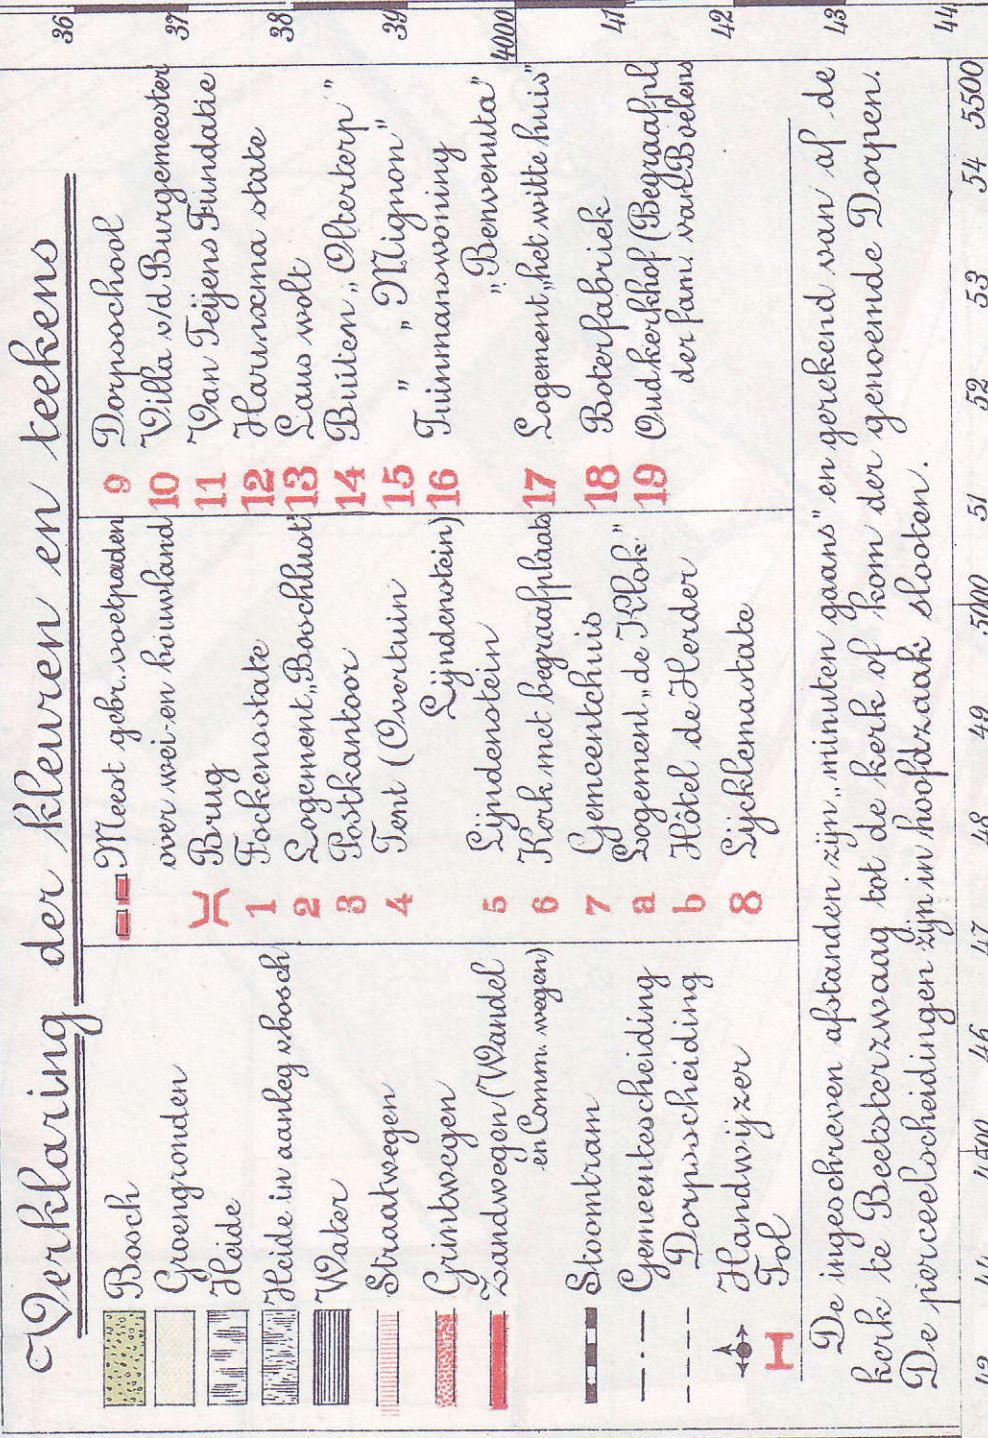 Verklaring der kleuren en teekens
Bosch
Groengronden
Heide
Heide in aanleg v bosch
Water
Straatwegen
Grintwegen
Zandwegen (Wandel
en Comm. wegen)
Stoomtram
Gemeentescheiding
Dorpsscheiding
Handwijzer
Tol
Meest gebr. voetpaden
over wei-en bouwland
Brug
1 Fockensstate
2 Logement „Boschlust"
3 Postkantoor
4 Tent (Overtuin
Lijndenstein)
5 Lijndenstein
6 Kerk met begraafplaats
7 Gemeentehuis
a Logement „de Klok"
b Hôtel de Herder
8 Lijcklemastate
9 Dorpsschool
10 Villa v/d Burgemeester
11 Van Teijens Fundatie
12 Harinxma state
13 Laus wolt
14 Buiten „Olterterp"
15 " „Mignon"
16 Tuinmanswoning
„Benvenuta"
17 Logement „het witte huis"
18 Boterfabriek
19 Oud kerkhof (Begraafpl.
der fam. van Boelens
De ingeschreven afstanden zijn „minuten gaans" en gerekend van af de
kerk te Beetsterzwaag tot de kerk of kom der genoemde Dorpen.
De perceelscheidingen zijn in hoofdzaak slooten.
36 37 38 39 4000 41 42 43 44
43 44 4500 46 47 48 49 5000 51 52 53 54 5500